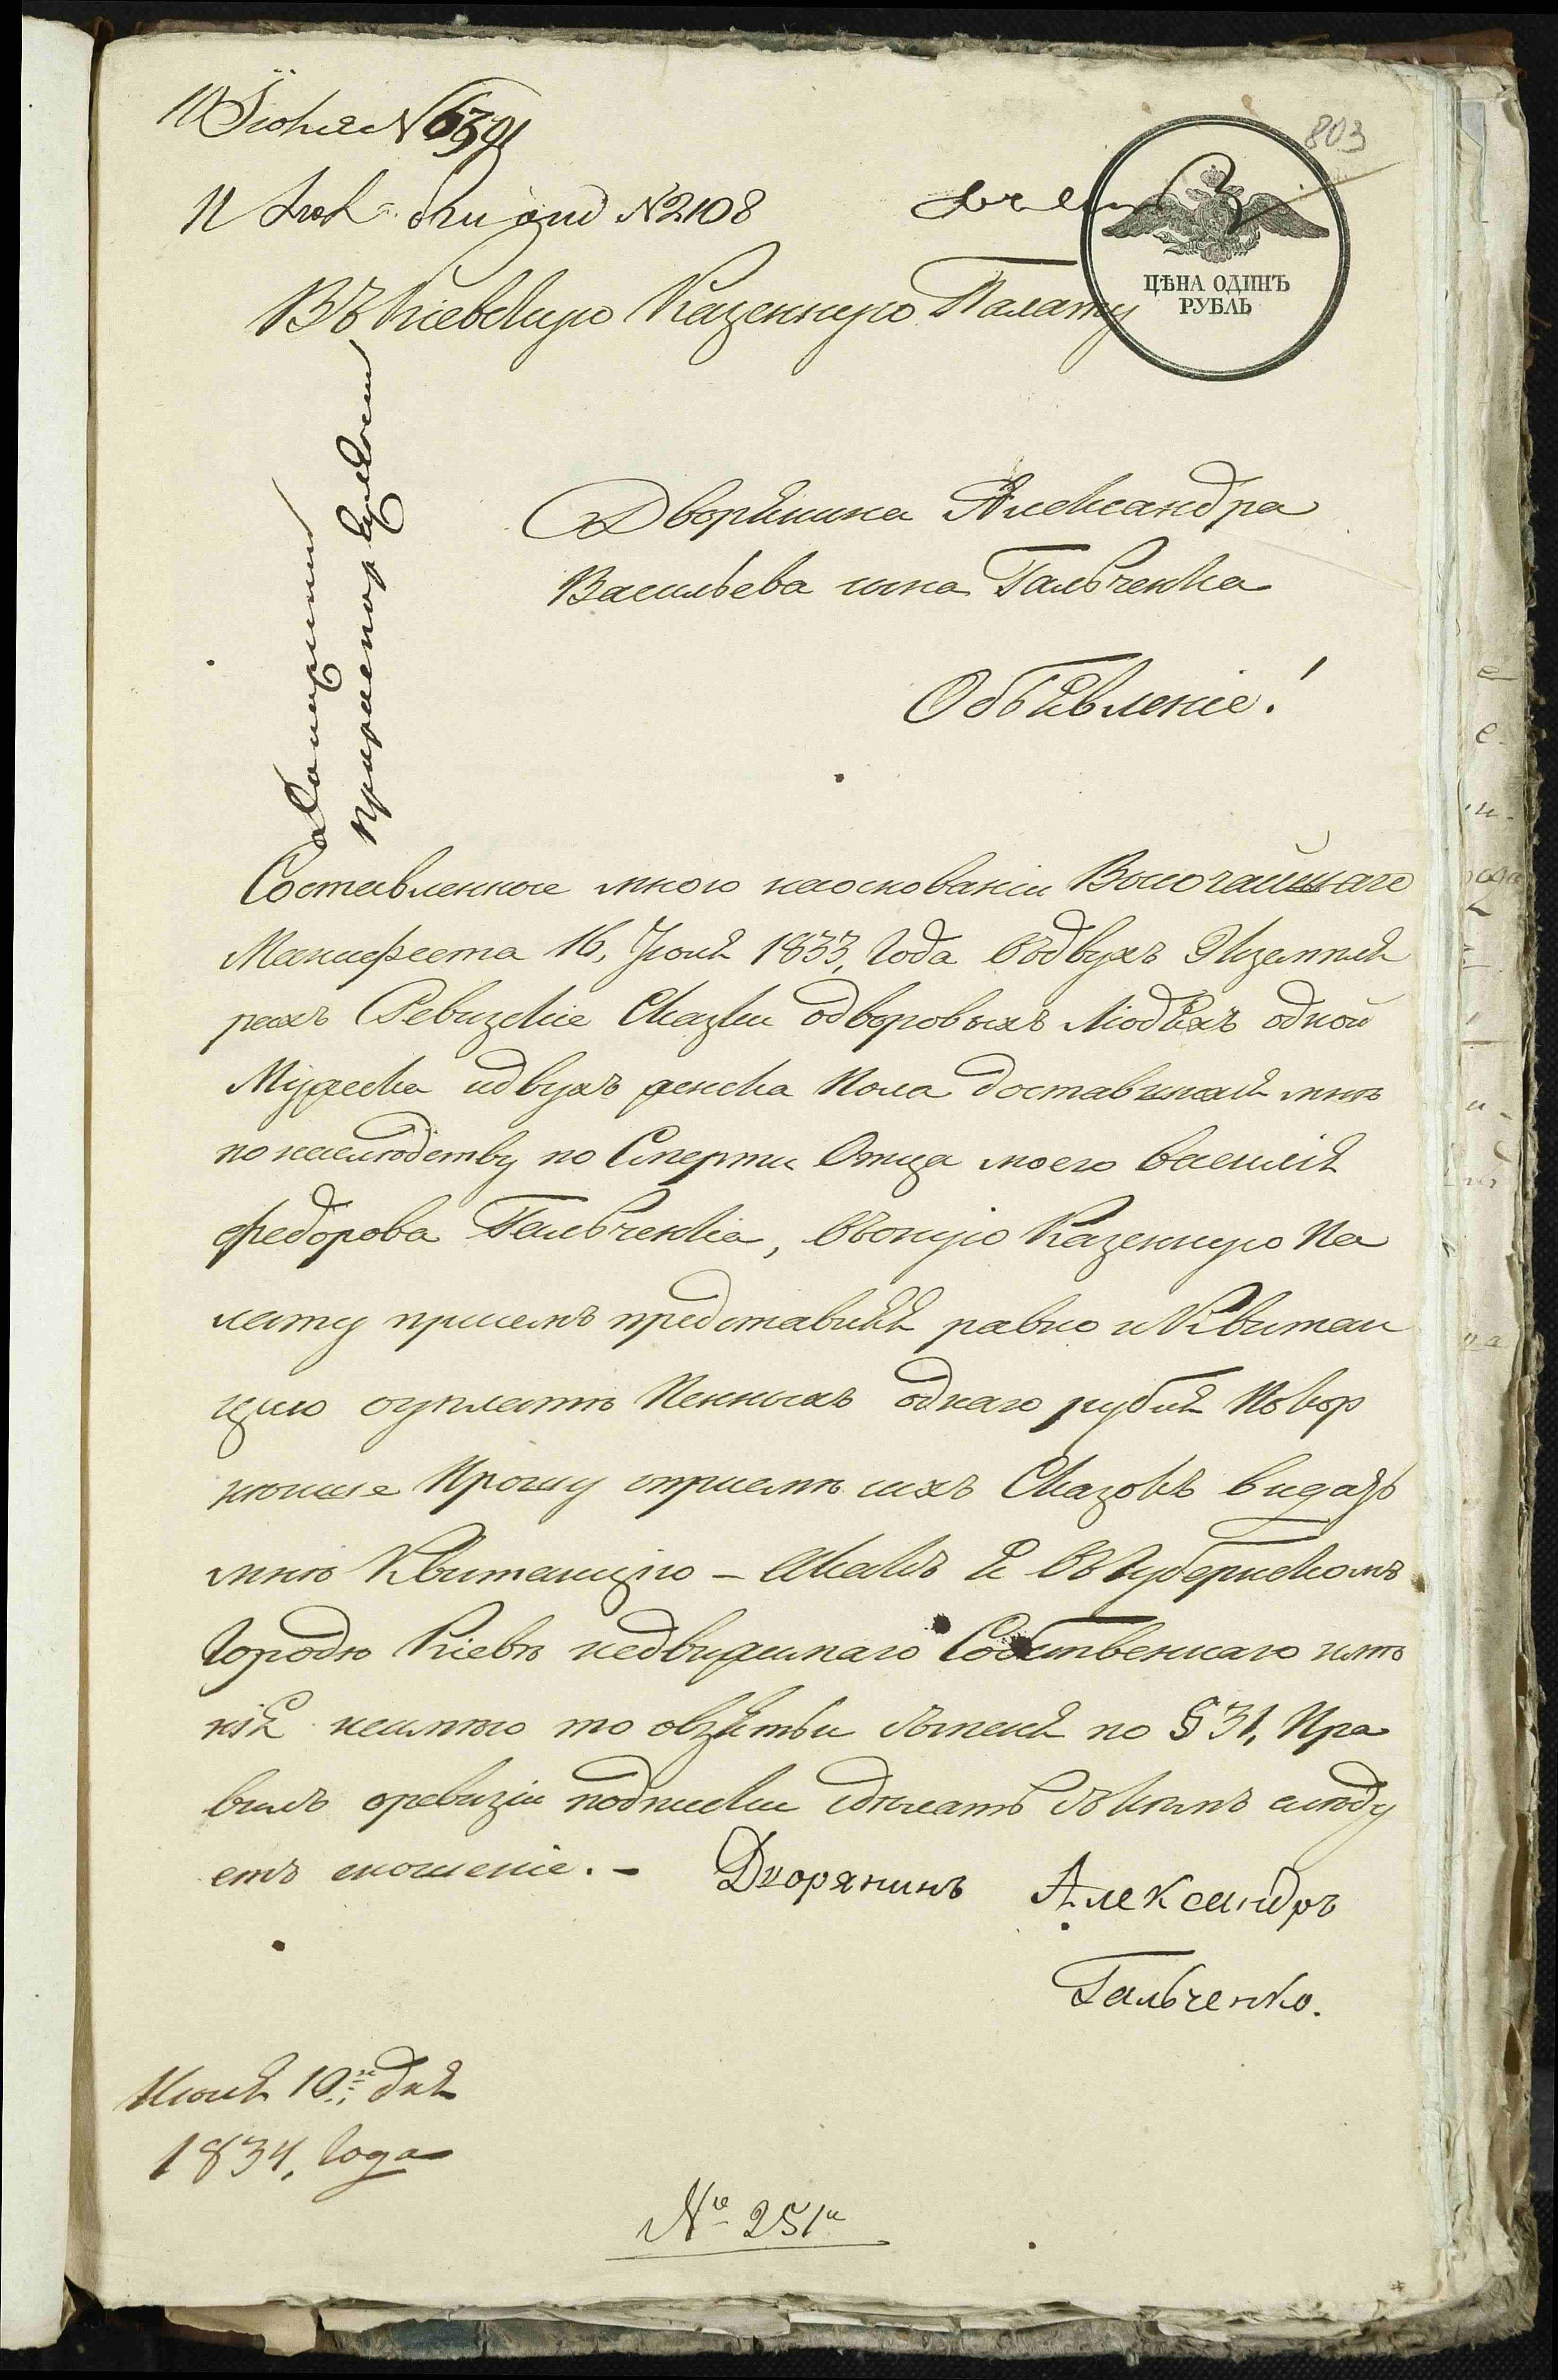 10 Іюня № 6391
11 № 2108
803
ЦѢНА ОДИНЪ
РУБЛЬ
Въ Кіевскую Казенную Палату
Дворянина Александра
Васильева сына Гальченка
Объявленіе!
Составленное мною наоснованіи Высочайшаго
Манифеста 16, Іюня 1833, Года въдвухъ Экземпля
рахъ Ревизскіе Сказки одворовыхъ Людяхъ одной
Мужеска идвухъ женска Пола доставшихся мнѣ
по наслѣдству по Смерти Отца моего Василія
Федорова Гальченка, въоную Казенную Па
лату присемъ представляя равно и Квитан
цию оуплатѣ Пенныхъ однаго рубля Покор
нюше Прошу оприемѣ ихъ Сказокъ видать
мнѣ Квитанцію – Акакъ Я въ Губернскомъ
Городѣ Кіевѣ недвижимаго Собственнаго имѣ
нія неимѣю то овзятьи сѣменя по § 31, Пра
вилъ оревизіи подписки сдѣлать съкимъ слѣду
етъ сношеніе. –
Дворянинъ Александръ
Гальченко.
Июня 10го дня
1834, Года
№ 251